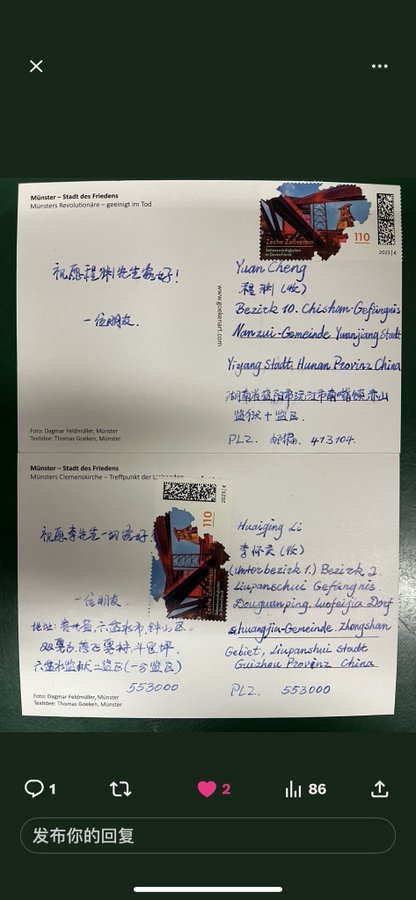 Münster – Stadt des Friedens
Münsters Revolutionäre – geeinigt im Tod
Zeche Zollverein
Sehenswürdigkeiten
in Deutschland
110
2023 | €
祝愿程渊先生安好!
一位朋友.
www.goekenart.com
Yuan Cheng
程渊(收)
Bezirk 10. Chishan-Gefängnis
Nanzui-Gemeinde Yuanjiang Stadt
Yiyang Stadt, Hunan Provinz China
湖南省益阳市沅江市南嘴镇赤山
监狱十监区.
PLZ. 邮编. 413104.
Foto: Dagmar Feldmüller, Münster
Textidee: Thomas Goeken, Münster
Münster – Stadt des Friedens
Münsters Clemenskirche – Treffpunkt der
2023 | €
110
Zeche Zollverein
祝愿李先生一切安好.
一位朋友.
地址: 贵州省, 六盘水市, 钟山区.
双戛 斗篷坪.
六盘水监狱二监区(一分监区)
553000
Huaiqing Li
李怀庆(收)
(Unterbezirk 1.) Bezirk 2.
Liupanschui Gefängnis
Douguanping. Luofeijia Dorf
shuangjia-Gemeinde. Zhongshan
Gebiet, Liupanshui Stadt
Guizhou Provinz China
PLZ. 553000
Foto: Dagmar Feldmüller, Münster
Textidee: Thomas Goeken, Münster
1
2
86
发布你的回复